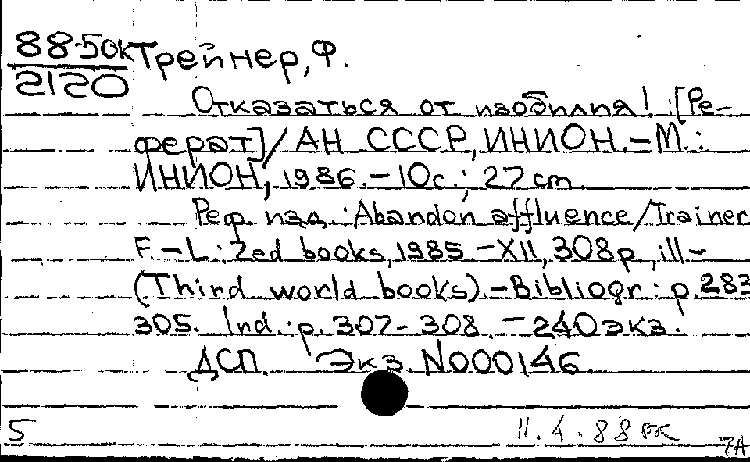 88-50к Трейнер, Ф.
2120
Отказаться от изобилия! [Ре-
ферат] / АН СССР, ИНИОН. - М.:
ИНИОН, 1986. - 10с.; 27cm.
Реф. изд.: Abandon affluence / Trainer
F. - L.: Zed books, 1985 - XII, 308p., ill -
(Third world books). - Bibliogr.: p. 283
305. Ind.: p. 307-308. - 240экз.
ДСП. Экз. N000146
5 11.4.88
7А